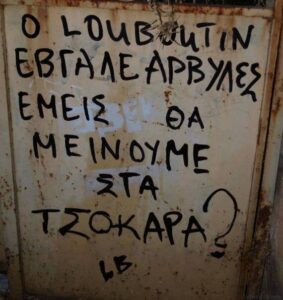 Ο LOUBOUTIN
ΕΒΓΑΛΕ ΑΡΒΥΛΕΣ
ΕΜΕΙΣ ΘΑ
ΜΕΙΝΟΥΜΕ
ΣΤΑ
ΤΣΟΚΑΡΑ?
LB